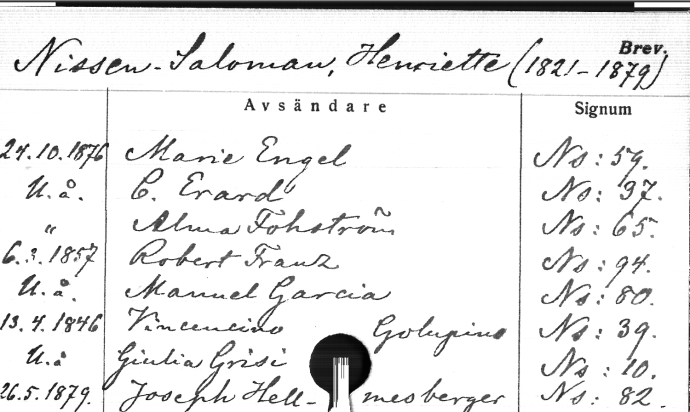 Brev.
Nissen-Saloman, Henriette (1821-1879)
Avsändare Signum
24.10.1876 Marie Engel Ns: 59.
U.å. C. Erard Ns: 37.
" Alma Fohström Ns: 65.
6.3.1857 Robert Franz Ns: 94.
U.å. Manuel Garcia Ns: 80.
13.4.1846 Vincencino Golupino Ns: 39.
U.å Giulia Grisi Ns: 10.
26.5.1879. Joseph Hell- mesberger Ns: 82.